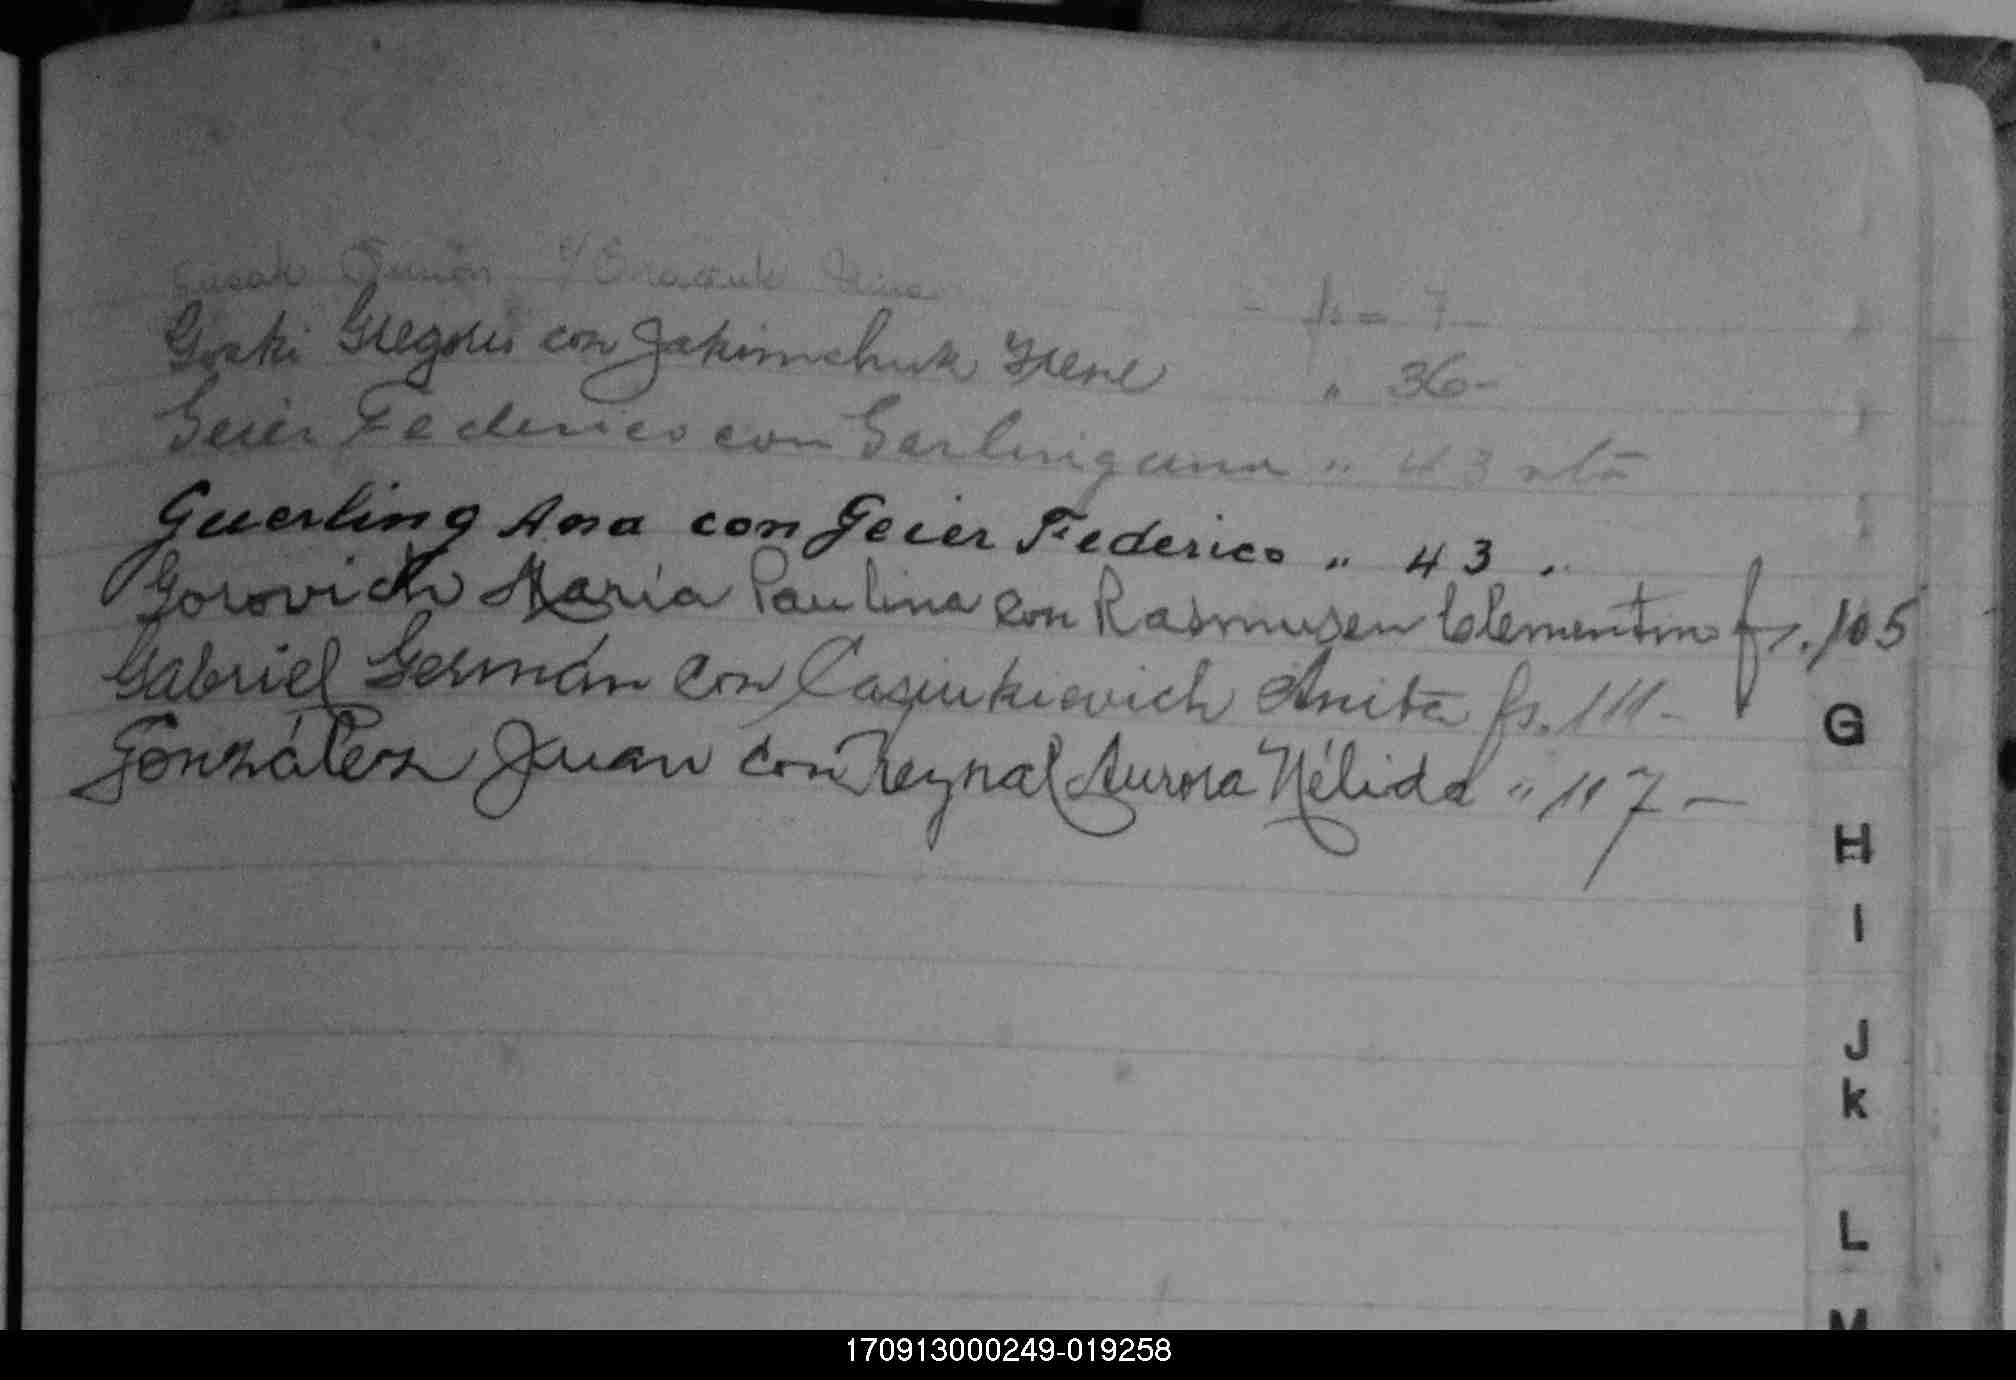 fs = 7
Gorki Gregorio con Jakimchuk Irene " 36-
Geier Federico con Gerling ana " 43 vta
Guerling Ana con Geier Federico " 43 "
Gorovich María Paulina con Rasmusen Clementino fs. 105
Gabriel Germán con Casiukievich Anita fs. 111-
González Juan con Reynal Aurora Nélida " 117 —
G
H
I
J
k
L
M
170913000249-019258